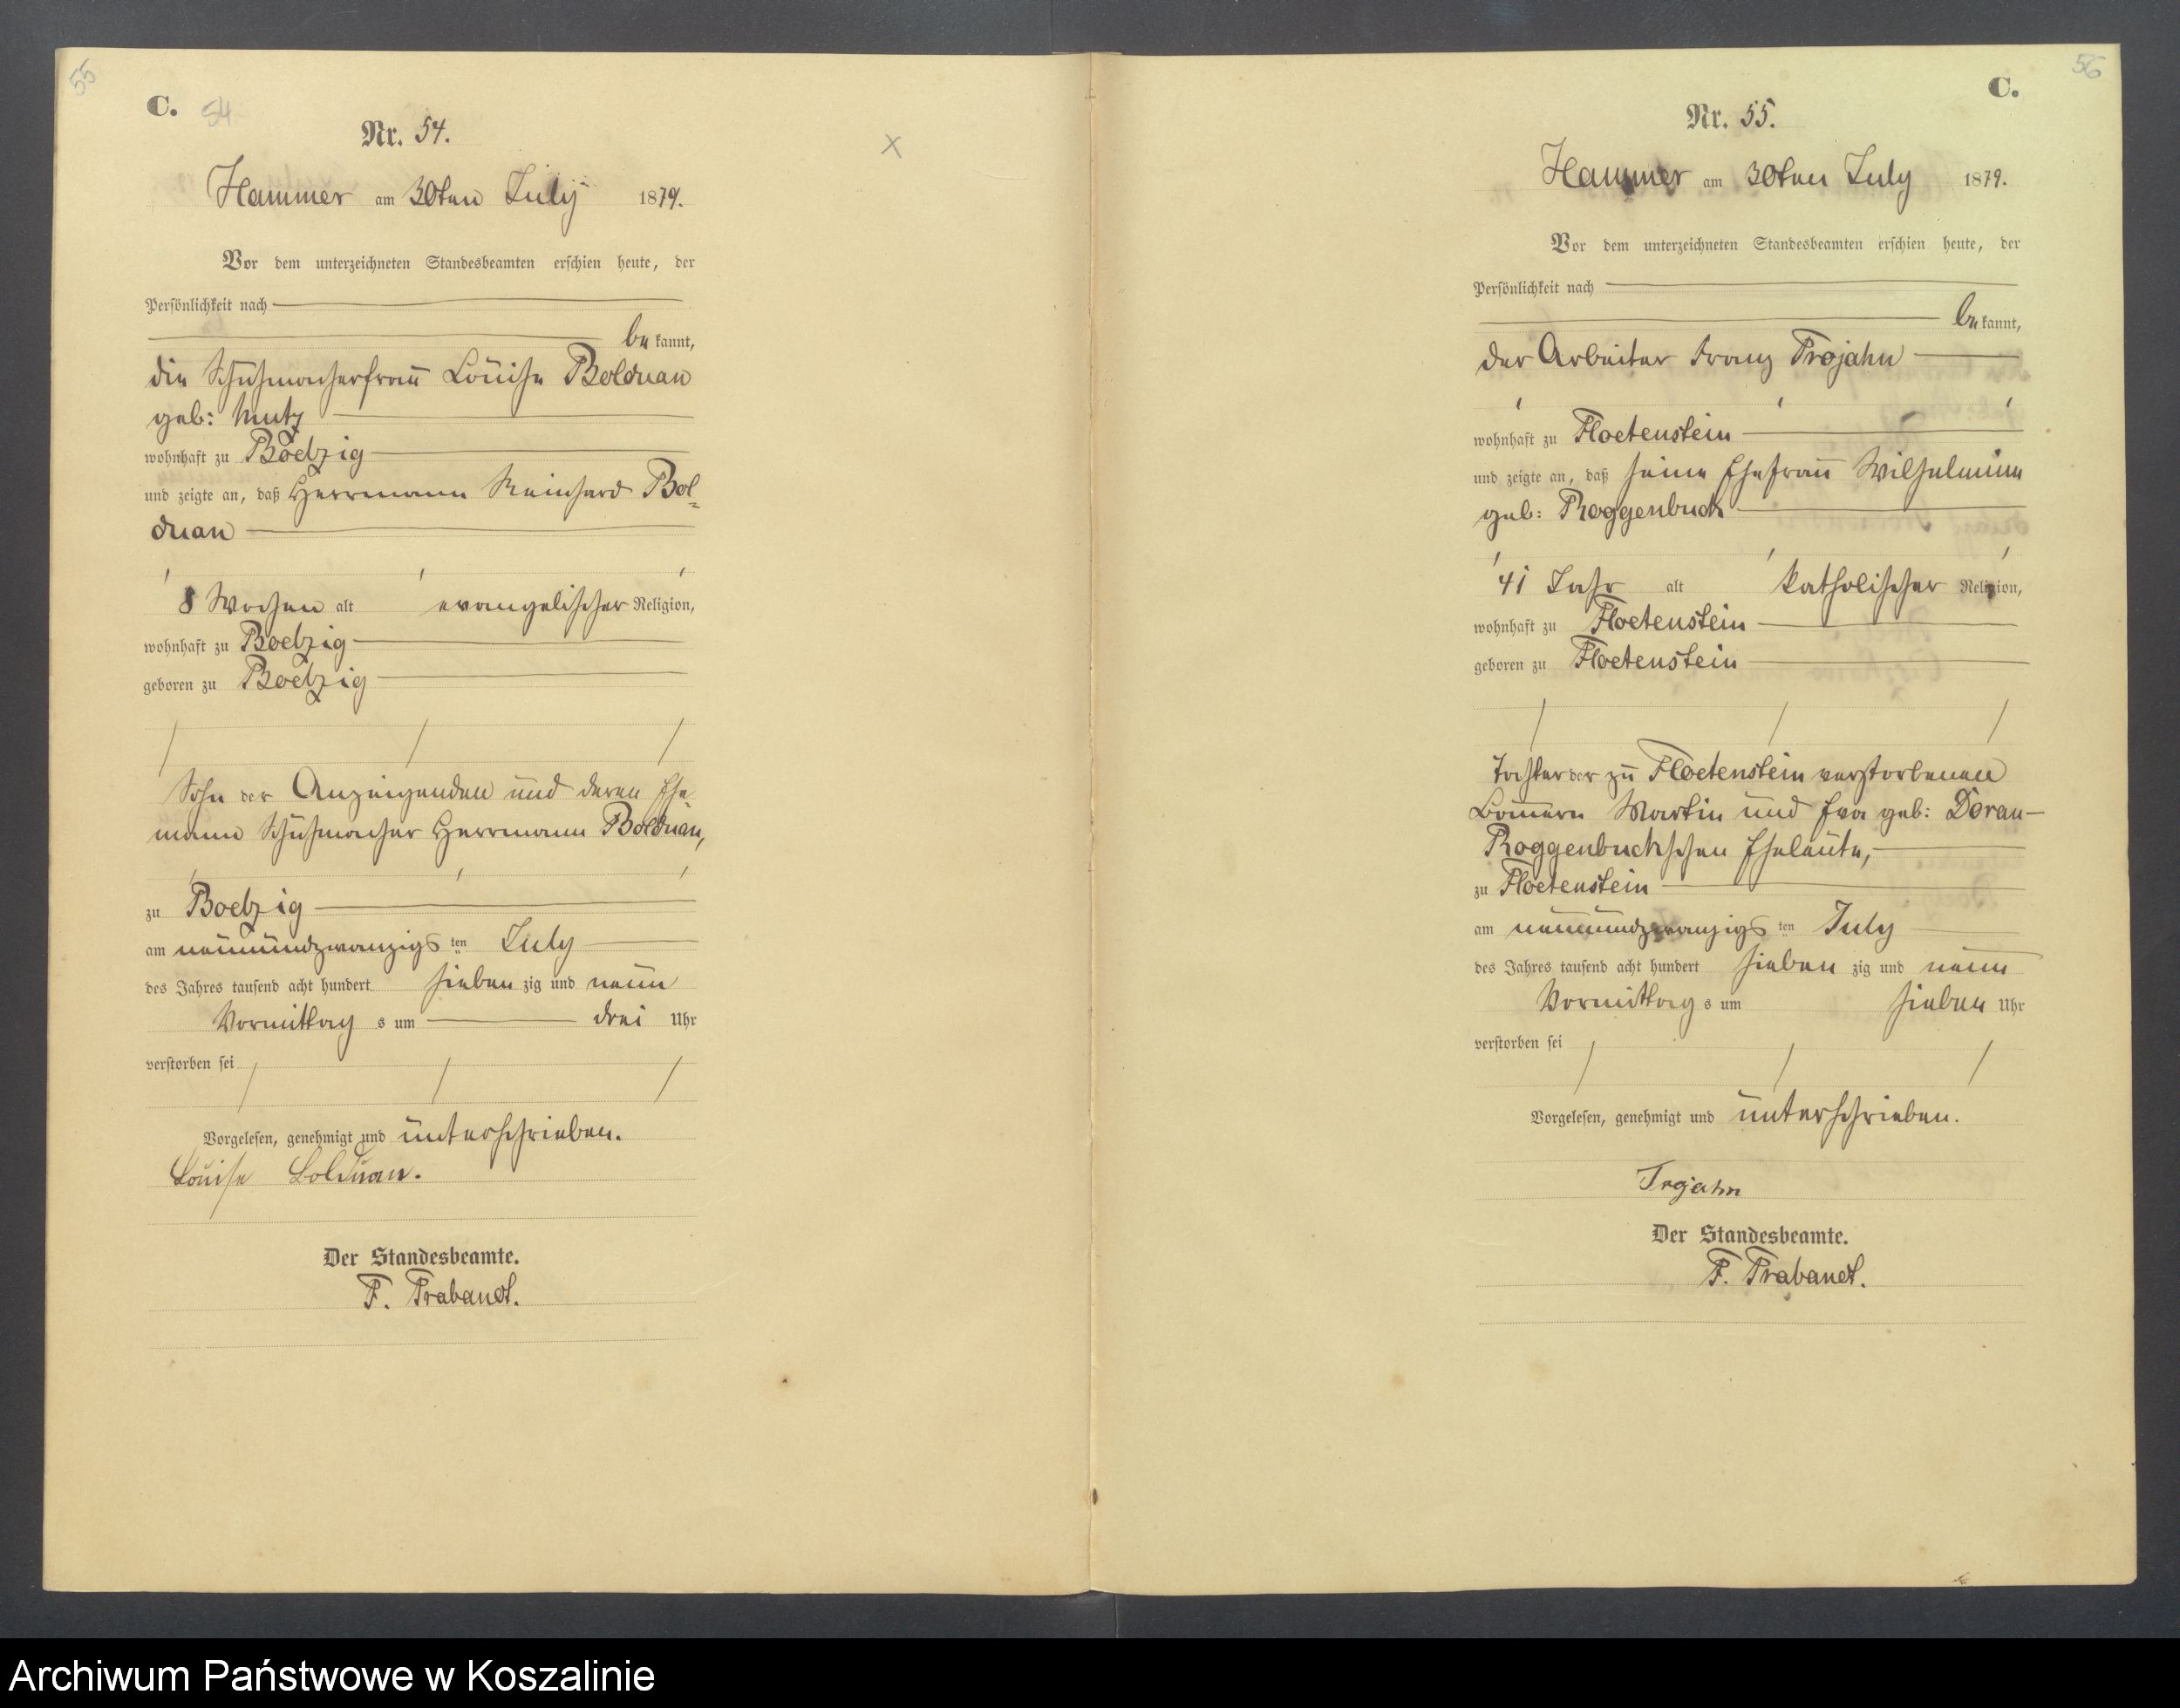 55
C. 54
Nr. 54.
Hammer am 30ten July 1879.
Vor dem unterzeichneten Standesbeamten erschien heute, der
Persönlichkeit nach
bekannt,
die Schuhmacherfrau Louise Bolduan
geb: Mutz
wohnhaft zu Boelzig
und zeigte an, daß Herrmann Reinhard Bol-
duan
8 Wochen alt evangelischer Religion,
wohnhaft zu Boelzig
geboren zu Boelzig
Sohn der Anzeigenden und deren Ehe-
mann Schuhmacher Herrmann Bolduan,
zu Boelzig
am neunundzwanzigsten July
des Jahres tausend acht hundert siebenzig und neun
Vormittags um drei Uhr
verstorben sei
Vorgelesen, genehmigt und unterschrieben.
Louise Bolduan.
Der Standesbeamte.
F. Trabandt.
X
56
C.
Nr. 55.
Hammer am 30ten July 1879.
Vor dem unterzeichneten Standesbeamten erschien heute, der
Persönlichkeit nach
bekannt,
der Arbeiter Franz Trojahn
wohnhaft zu Floetenstein
und zeigte an, daß seine Ehefrau Wilhelmine
geb: Roggenbuck
41 Jahr alt katholischer Religion,
wohnhaft zu Floetenstein
geboren zu Floetenstein
Tochter der zu Floetenstein verstorbenen
Bauern Martin und Eva geb: Doran-
Roggenbuckschen Eheleute,
zu Floetenstein
am neunundzwanzigsten July
des Jahres tausend acht hundert siebenzig und neun
Vormittags um sieben Uhr
verstorben sei
Vorgelesen, genehmigt und unterschrieben.
Trojahn
Der Standesbeamte.
F. Trabandt.
Archiwum Państwowe w Koszalinie